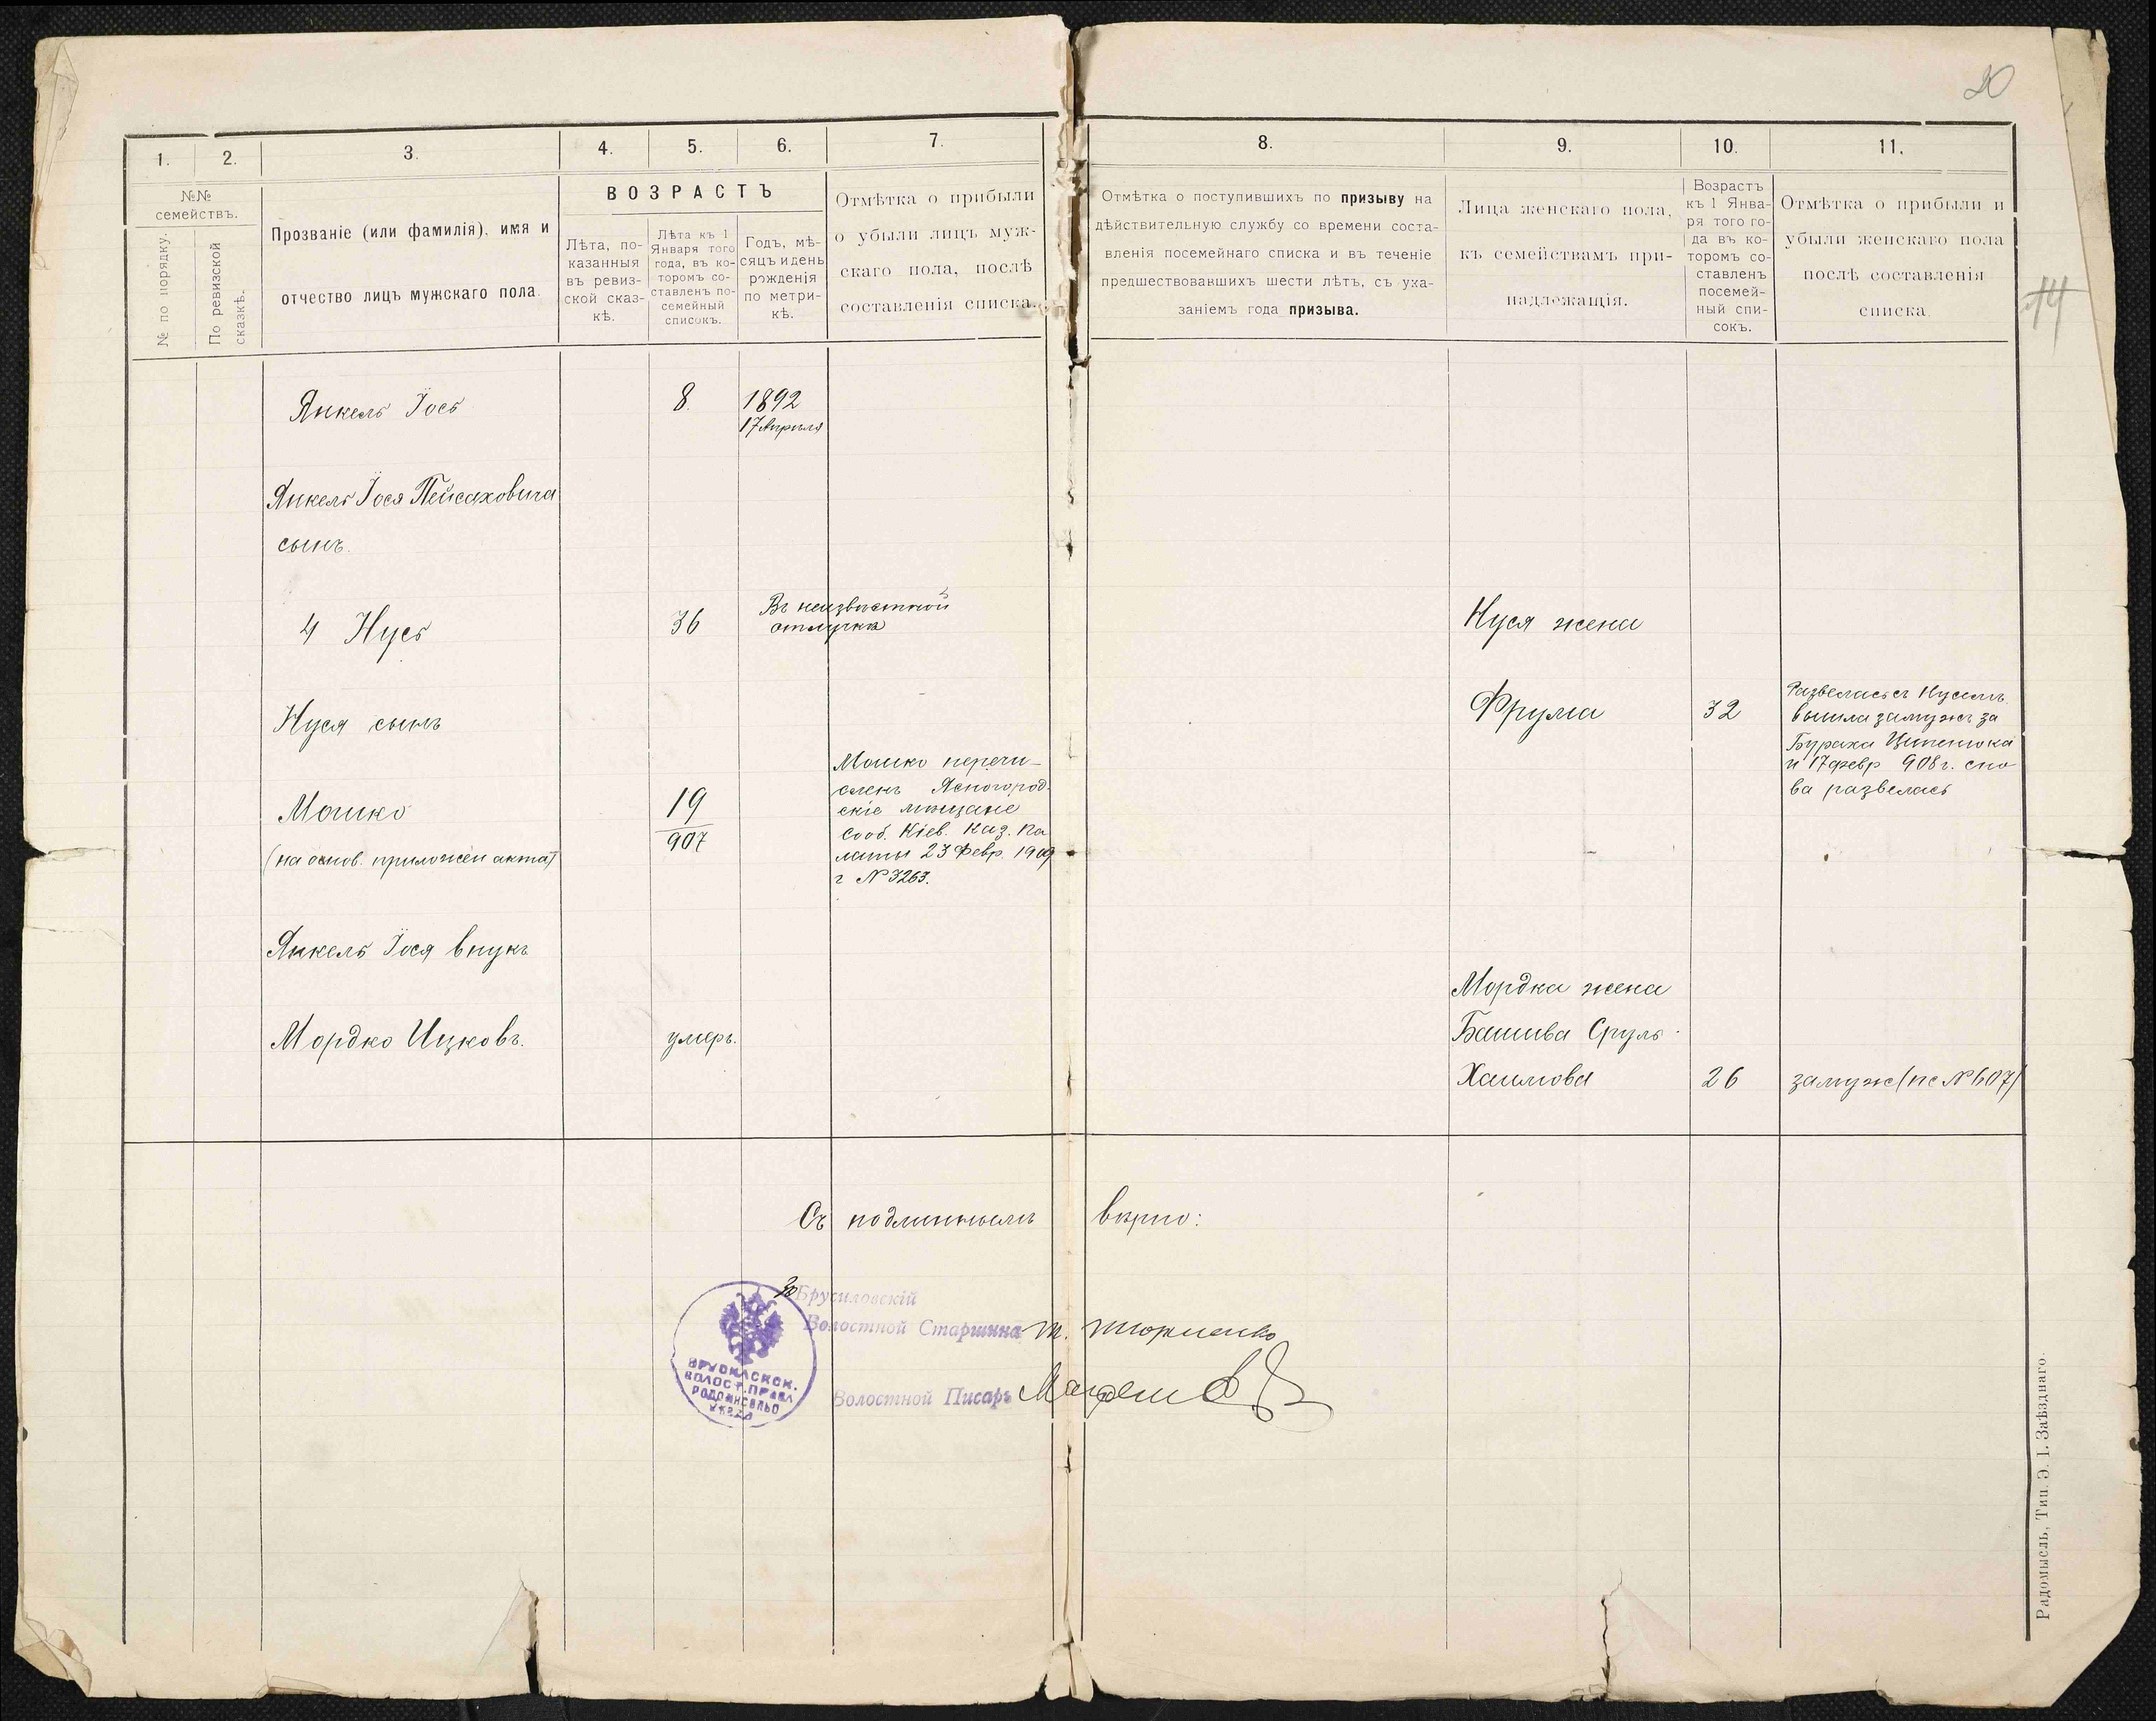 20
1.
2.
3.
4.
5.
6.
7.
8.
9.
10.
11.
№№
семействъ.
№ по порядку.
По ревизской
сказкѣ.
Прозваніе (или фамилія), имя и
отчество лицъ мужскаго пола.
ВОЗРАСТЪ
Лѣта, по-
казанныя
въ ревиз-
ской сказ-
кѣ.
Лѣта къ 1
Января того
года, въ ко-
торомъ со-
ставленъ по-
семейный
списокъ.
Годъ, мѣ-
сяцъ и день
рожденія
по метри-
кѣ.
Отмѣтка о прибыли
о убыли лицъ муж-
скаго пола, послѣ
составленія списка.
Отмѣтка о поступившихъ по призыву на
дѣйствительную службу со времени соста-
вленія посемейнаго списка и въ теченіе
предшествовавшихъ шести лѣтъ, съ ука-
заніемъ года призыва.
Лица женскаго пола,
къ семействамъ при-
надлежащія.
Возрастъ
къ 1 Янва-
ря того го-
да въ ко-
торомъ со-
ставленъ
посемей-
ный спи-
сокъ.
Отмѣтка о прибыли и
убыли женскаго пола
послѣ составленія
списка.
14
Янкель Іось
8.
1892
17 Апрѣля
Янкель Іося Пейсаховича
сынъ.
4 Нусь
36
Въ неизвѣстной
отлучкѣ
Нуся жена
Нуся сынъ
Фрума
32
Развелась съ Нусемъ
вышла замужъ за
Бураха Ципенюка
и 17 февр 908 г. сно
ва развелась
Мошко
(на основ. приложен акта)
19
907
Мошко перечи-
сленъ Ясногород-
скіе мѣщане
сооб. Кіев. Каз. Па
латы 23 Февр. 1909
г №3263.
Янкель Іося внукъ
Мордко Ицковъ.
умеръ.
Мордка жена
Башива Сруль-
Хаимова
26
замуж (пс №607)
Съ подлиннымъ вѣрно:
За Брусиловскій
Волостной Старшина
Волостной Писарь
ВОЛОСТ. ПРАВЛ
УѢЗДА
Радомысль, Тип. Э. І. Заѣзднаго.